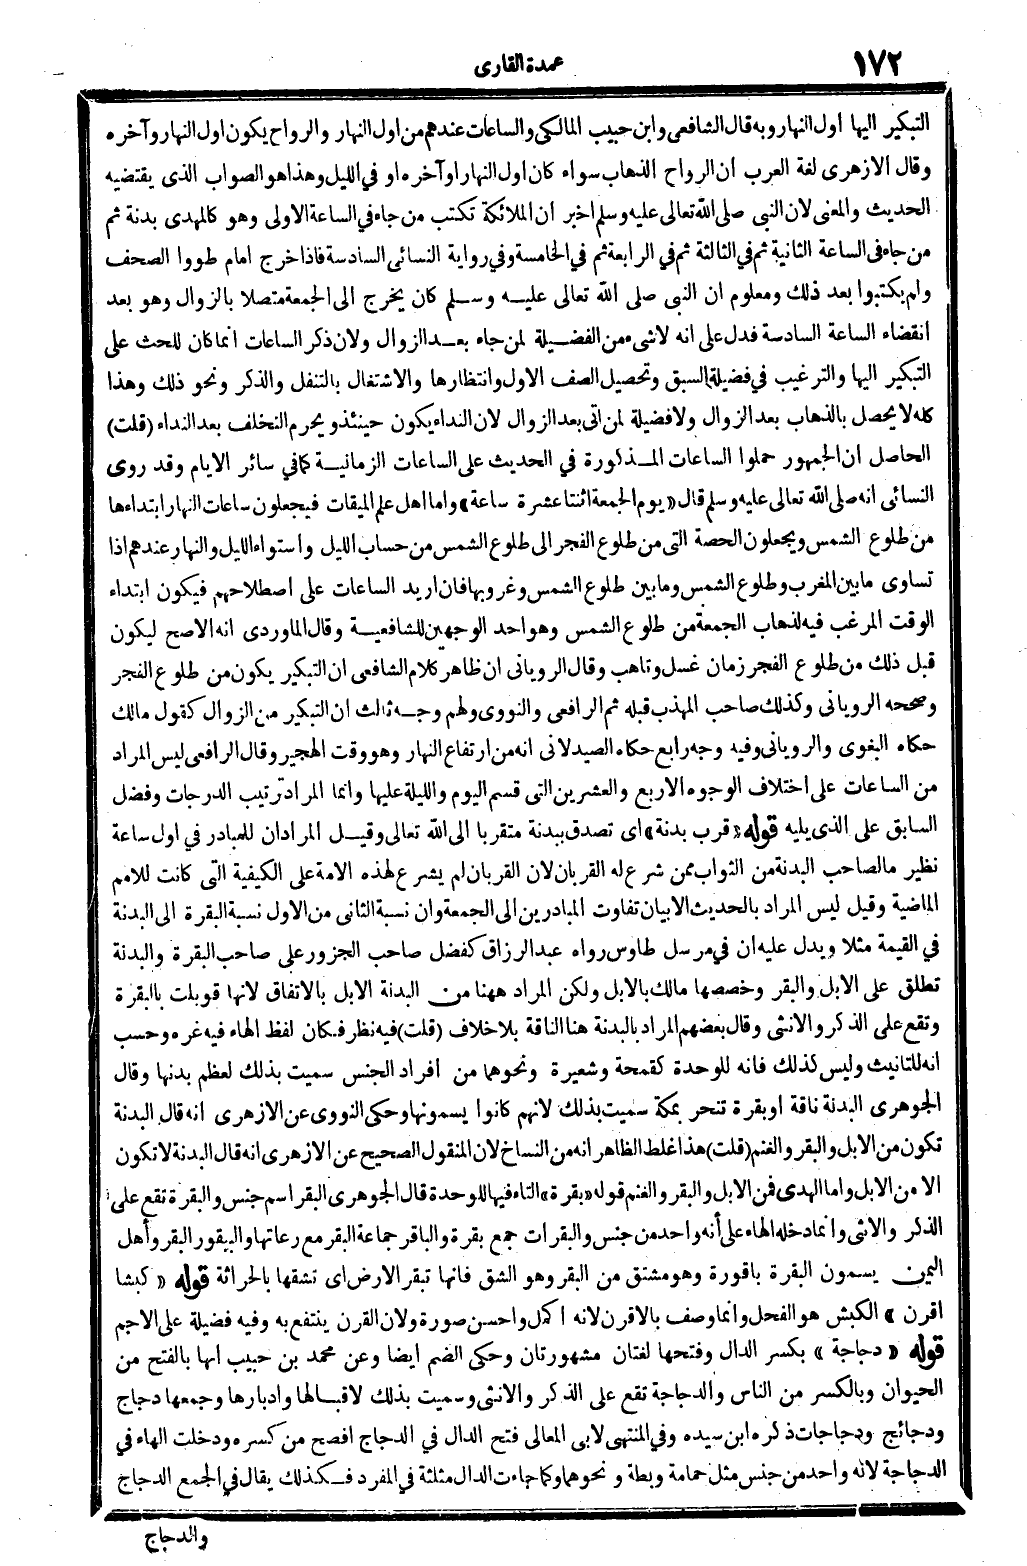 ١٧٢
عمدة القارى
التبكير اليها اول النهار وبه قال الشافعى وابن حبيب المالكى والساعات عندهم من اول النهار والرواح يكون اول النهار وآخره
وقال الازهرى لغة العرب ان الرواح الذهاب سواء كان اول النهار او آخره او في الليل وهذا هو الصواب الذى يقتضيه
الحديث والمعنى لان النبى صلى الله تعالى عليه وسلم اخبر ان الملائكة تكتب من جاء في الساعة الاولى وهو كالمهدى بدنة ثم
من جاء فى الساعة الثانية ثم في الثالثة ثم في الرابعة ثم في الخامسة وفي رواية النسائى السادسة فاذا خرج امام طووا الصحف
ولم يكتبوا بعد ذلك ومعلوم ان النبى صلى الله تعالى عليه وسلم كان يخرج الى الجمعة متصلا بالزوال وهو بعد
انقضاء الساعة السادسة فدل على انه لاشىء من الفضيلة لمن جاء بعد الزوال ولان ذكر الساعات انما كان للحث على
التبكير اليها والترغيب في فضيلة السبق وتحصيل الصف الاول وانتظارها والاشتغال بالتنفل والذكر ونحو ذلك وهذا
كله لا يحصل بالذهاب بعد الزوال ولا فضيلة لمن اتى بعد الزوال لان النداء يكون حينئذ ويحرم التخلف بعد النداء (قلت)
الحاصل ان الجمهور حملوا الساعات المذكورة في الحديث على الساعات الزمانية كما في سائر الايام وقد روى
النسائى انه صلى الله تعالى عليه وسلم قال «يوم الجمعة اثنتا عشرة ساعة» واما اهل علم الميقات فيجعلون ساعات النهار ابتداءها
من طلوع الشمس ويجعلون الحصة التى من طلوع الفجر الى طلوع الشمس من حساب الليل واستواء الليل والنهار عندهم اذا
تساوى مابين المغرب وطلوع الشمس ومابين طلوع الشمس وغروبها فان اريد الساعات على اصطلاحهم فيكون ابتداء
الوقت المرغب فيه لذهاب الجمعة من طلوع الشمس وهو احد الوجهين للشافعية وقال الماوردى انه الاصح ليكون
قبل ذلك من طلوع الفجر زمان غسل وتاهب وقال الرويانى ان ظاهر كلام الشافعى ان التبكير يكون من طلوع الفجر
وصححه الرويانى وكذلك صاحب المهذب قبله ثم الرافعى والنووى ولهم وجه ثالث ان التبكير من الزوال كقول مالك
حكاه البغوى والرويانى وفيه وجه رابع حكاه الصيدلانى انه من ارتفاع النهار وهو وقت الهجير وقال الرافعى ليس المراد
من الساعات على اختلاف الوجوه الاربع والعشرين التى قسم اليوم والليلة عليها وانما المراد ترتيب الدرجات وفضل
السابق على الذى يليه قوله «قرب بدنة» اى تصدق ببدنة متقربا الى الله تعالى وقيل المراد ان للمبادر في اول ساعة
نظير مالصاحب البدنة من الثواب ممن شرع له القربان لان القربان لم يشرع لهذه الامة على الكيفية التى كانت للامم
الماضية وقيل ليس المراد بالحديث الابيان تفاوت المبادرين الى الجمعة وان نسبة الثانى من الاول نسبة البقرة الى البدنة
في القيمة مثلا ويدل عليه ان في مرسل طاوس رواه عبد الرزاق كفضل صاحب الجزور على صاحب البقرة والبدنة
تطلق على الابل والبقر وخصصها مالك بالابل ولكن المراد ههنا من البدنة الابل بالاتفاق لانها قوبلت بالبقرة
وتقع على الذكر والانثى وقال بعضهم المراد بالبدنة هنا الناقة بلا خلاف (قلت) فيه نظر فكان لفظ الهاء فيه غره وحسب
انه للتانيث وليس كذلك فانه للوحدة كقمحة وشعيرة ونحوهما من افراد الجنس سميت بذلك لعظم بدنها وقال
الجوهرى البدنة ناقة او بقرة تنحر بمكة سميت بذلك لانهم كانوا يسمونها وحكى النووى عن الازهرى انه قال البدنة
تكون من الابل والبقر والغنم (قلت) هذا غلط الظاهر انه من النساخ لان المنقول الصحيح عن الازهرى انه قال البدنة لا تكون
الا من الابل واما الهدى فمن الابل والبقر والغنم قوله «بقرة» التاء فيها للوحدة قال الجوهرى البقر اسم جنس والبقرة تقع على
الذكر والانثى وانما دخله الهاء على أنه واحد من جنس والبقرات جمع بقرة والباقر جماعة البقر مع رعاتها والبيقور البقر وأهل
اليمن يسمون البقرة باقورة وهو مشتق من البقر وهو الشق فانها تبقر الارض اى تشقها بالحراثة قوله «كبشا
اقرن» الكبش هو الفحل وانما وصف بالاقرن لانه اكمل واحسن صورة ولان القرن ينتفع به وفيه فضيلة على الاجم
قوله «دجاجة» بكسر الدال وفتحها لغتان مشهورتان وحكى الضم ايضا وعن محمد بن حبيب انها بالفتح من
الحيوان وبالكسر من الناس والدجاجة تقع على الذكر والانثى وسميت بذلك لاقبالها وادبارها وجمعها دجاج
ودجائج ودجاجات ذكره ابن سيده وفي المنتهى لابى المعالى فتح الدال في الدجاج افصح من كسره ودخلت الهاء في
الدجاجة لانه واحد من جنس مثل حمامة وبطة ونحوهما وكما جاءت الدال مثلثة في المفرد فكذلك يقال في الجمع الدجاج
والدجاج